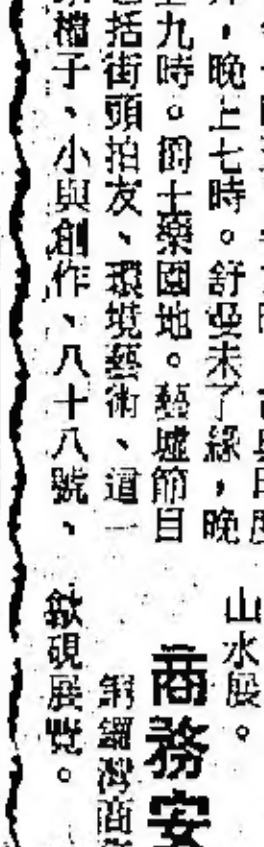 ，晚上七時。舒曼未了緣，晚
上九時。爵士樂園地。藝墟節目
括街頭拍友、環境藝術、這一
檔子、小與創作、八十八號、
山水展。
商務安
銅鑼灣商
歙硯展覽。